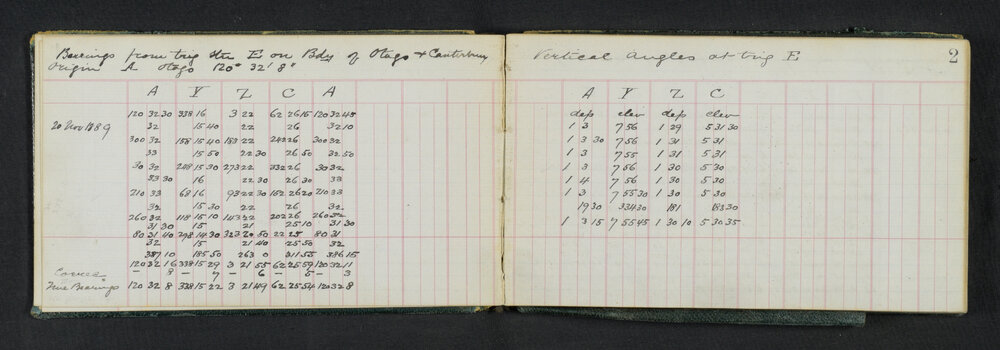 Bearings from trig stn E on Bdy of Otago & Canterbury
Origin A Otago 120° 32' 8"
A Y Z C A
120 32 30 338 16 3 22 62 26 15 120 32 45
20 Nov 1889 32 15 40 22 26 32 10
300 32 158 15 40 183 22 242 26 300 32
33 15 50 22 30 26 50 32 50
30 32 248 15 30 273 22 332 26 30 32
33 30 16 22 30 26 30 33
210 33 68 16 93 22 30 152 26 20 210 33
32 15 30 22 26 32
260 32 118 15 10 143 22 202 26 260 32
31 30 15 21 25 10 31 30
80 31 40 298 14 30 323 20 50 22 25 80 31
32 15 21 40 25 50 32
387 10 185 50 263 0 311 55 386 15
120 32 16 338 15 29 3 21 55 62 25 59 120 32 11
Correc. – 8 – 7 – 6 – 5 – 3
True Bearings 120 32 8 338 15 22 3 21 49 62 25 54 120 32 8
Vertical Angles at trig E 2
A Y Z C
dep elev dep elev
1 3 7 56 1 29 5 31 30
1 3 30 7 56 1 31 5 31
1 3 7 55 1 31 5 31
1 3 7 56 1 30 5 30
1 4 7 56 1 30 5 30
1 3 7 55 30 1 30 5 30
19 30 334 30 181 183 30
1 3 15 7 55 45 1 30 10 5 30 35